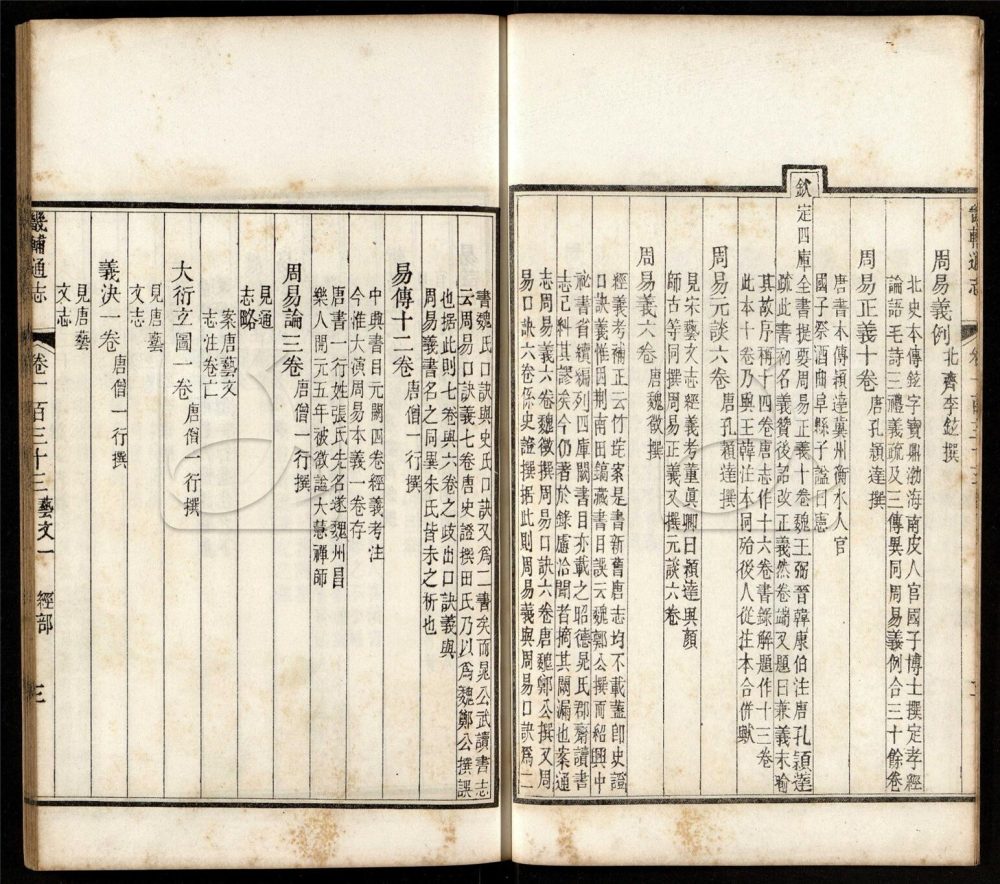 周易義例 北齊李鉉撰
北史本傳鉉字寶鼎渤海南皮人官國子博士撰定孝經
論語毛詩三禮義疏及三傳異同周易義例合三十餘卷
周易正義十卷 唐孔穎達撰
唐書本傳穎達冀州衡水人官
國子祭酒曲阜縣子諡曰憲
欽定四庫全書提要周易正義十卷魏王弼晉韓康伯注唐孔穎達
疏此書初名義贊後詔改正義然卷端又題曰兼義未喻
其故序稱十四卷唐志作十六卷書錄解題作十三卷
此本十卷乃與王韓注本同殆後人從注本合併歟
周易元談六卷 唐孔穎達撰
見宋藝文志經義考董真卿曰穎達與顏
師古等同撰周易正義又撰元談六卷
周易義六卷 唐魏徵撰
經義考補正云竹垞案是書新舊唐志均不載蓋卽史證
口訣義惟因荆南田鎬藏書目談云魏鄭公撰而紹興中
祕書省續編列四庫闕書目亦載之昭德晁氏郡齋讀書
志已糾其謬矣今仍著於錄慮洽聞者摘其闕漏也案通
志周易義六卷魏徵撰周易口訣六卷唐魏鄭公撰又周
易口訣六卷係史證撰據此則周易義與周易口訣爲二
書魏氏口訣與史氏口訣又爲二書矣而晁公武讀書志
云周易口訣義七卷唐史證撰田氏乃以爲魏鄭公撰誤
也據此則七卷與六卷之歧出口訣義與
周易義書名之同異朱氏皆未之析也
易傳十二卷 唐僧一行撰
中興書目元闕四卷經義考注
今惟大演周易本義一卷存
唐書一行姓張氏先名遂魏州昌
樂人開元五年被徵諡大慧禪師
周易論三卷 唐僧一行撰
見通
志略
案唐藝文
志注卷亡
大衍立圖一卷 唐僧一行撰
見唐藝
文志
義決一卷 唐僧一行撰
見唐藝
文志
畿輔通志 卷一百三十三 藝文一 經部 三